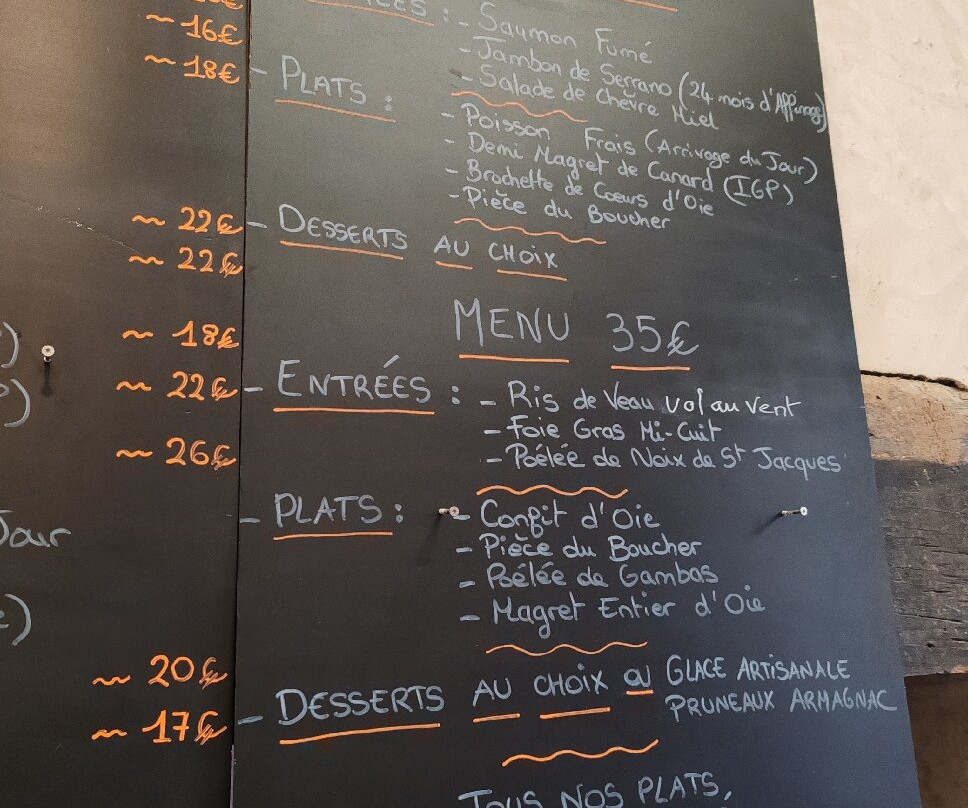 ~ 16€
~ 18€
~ 22€
~ 22€
~ 18€
~ 22€
~ 26€
Jour
~ 20€
~ 17€
: - Saumon Fumé
- Jambon de Serrano (24 mois d'Affinage)
- Salade de Chèvre Miel
- PLATS :
- Poisson Frais (Arrivage du Jour)
- Demi Magret de Canard (IGP)
- Brochette de Coeurs d'Oie
- Pièce du Boucher
- DESSERTS AU CHOIX
MENU 35€
- ENTRÉES : - Ris de Veau vol au vent
- Foie Gras Mi-Cuit
- Poélée de Noix de St Jacques
- PLATS : - Confit d'Oie
- Pièce du Boucher
- Poélée de Gambas
- Magret Entier d'Oie
- DESSERTS AU CHOIX OU GLACE ARTISANALE
PRUNEAUX ARMAGNAC
TOUS NOS PLATS,